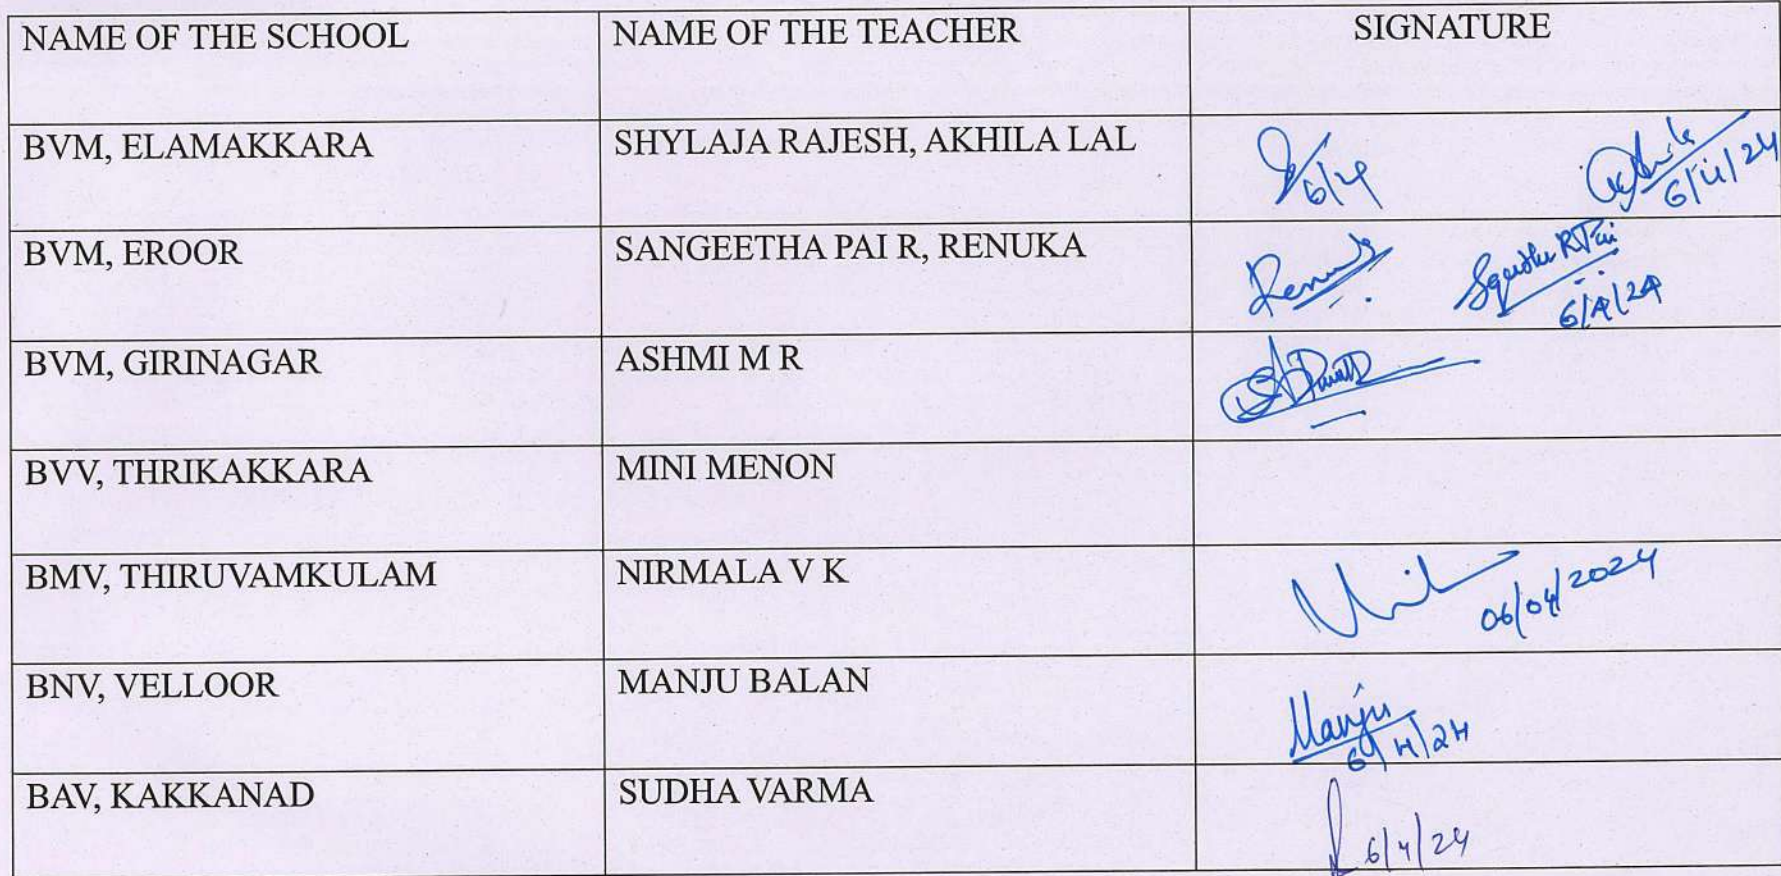 NAME OF THE SCHOOL NAME OF THE TEACHER SIGNATURE
BVM, ELAMAKKARA SHYLAJA RAJESH, AKHILA LAL
6/4 6/4/24
BVM, EROOR SANGEETHA PAI R, RENUKA
6/4/24
BVM, GIRINAGAR ASHMI M R
BVV, THRIKAKKARA MINI MENON
BMV, THIRUVAMKULAM NIRMALA V K
06/04/2024
BNV, VELLOOR MANJU BALAN
Manju
6/4/24
BAV, KAKKANAD SUDHA VARMA
6/4/24